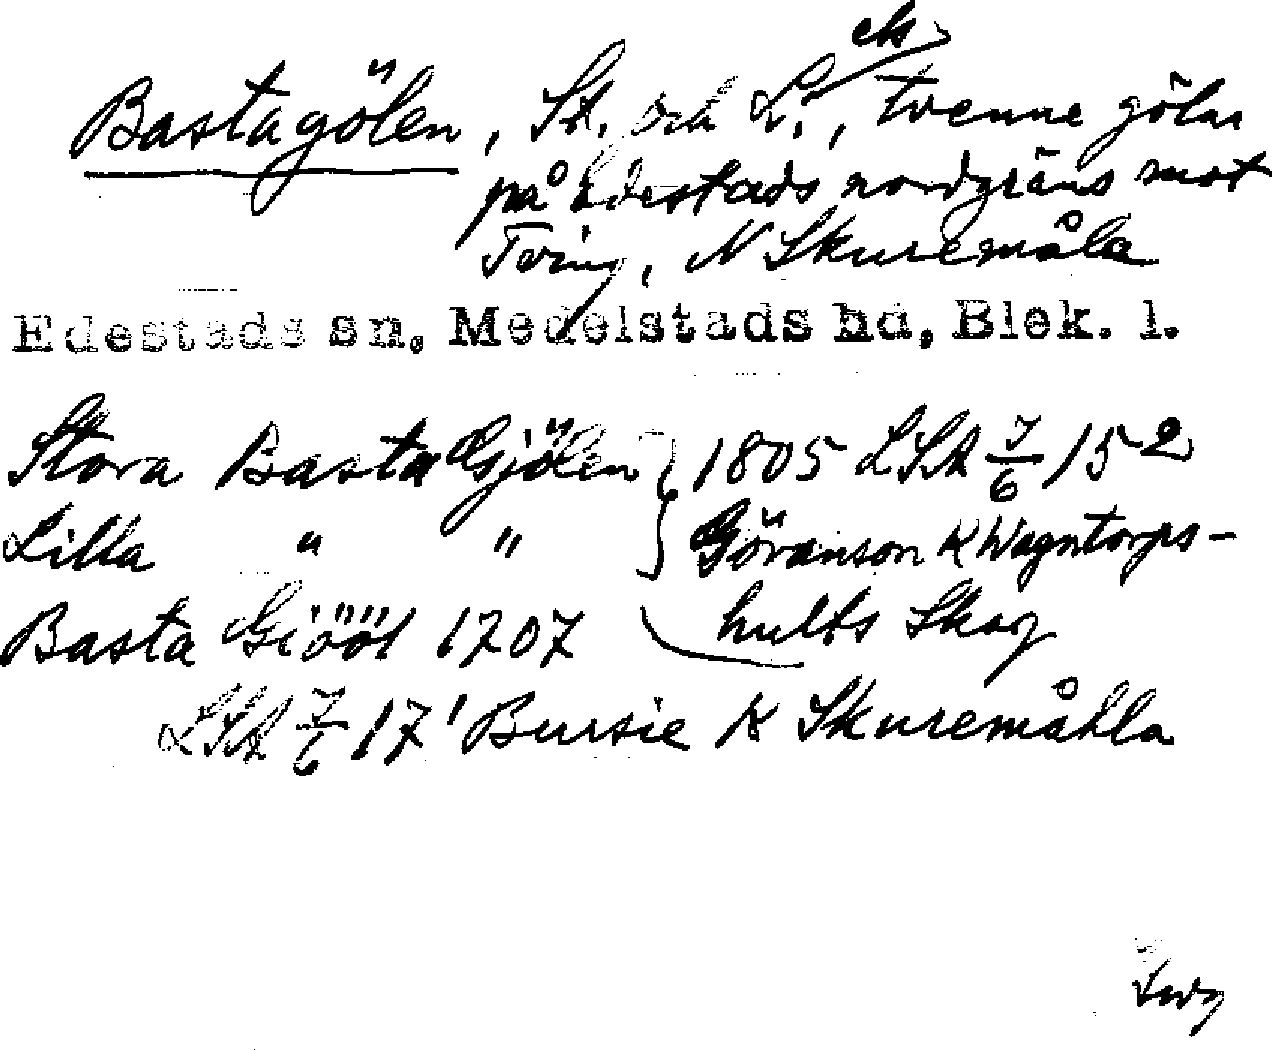 ek
Bastagölen, St. och L:, tvenne gölar
på Edestads nordgräns mot
Tving, N Skuremåla
Edestads sn, Medelstads hd, Blek. l.
Stora Basta Gjölen } 1805 LSA 7/6 15²
Lilla " " } Göranson K Wagntorps-
hults Skog
Basta Giööl 1707
LSA 7/6 17¹ Bursie K Skuremåhla